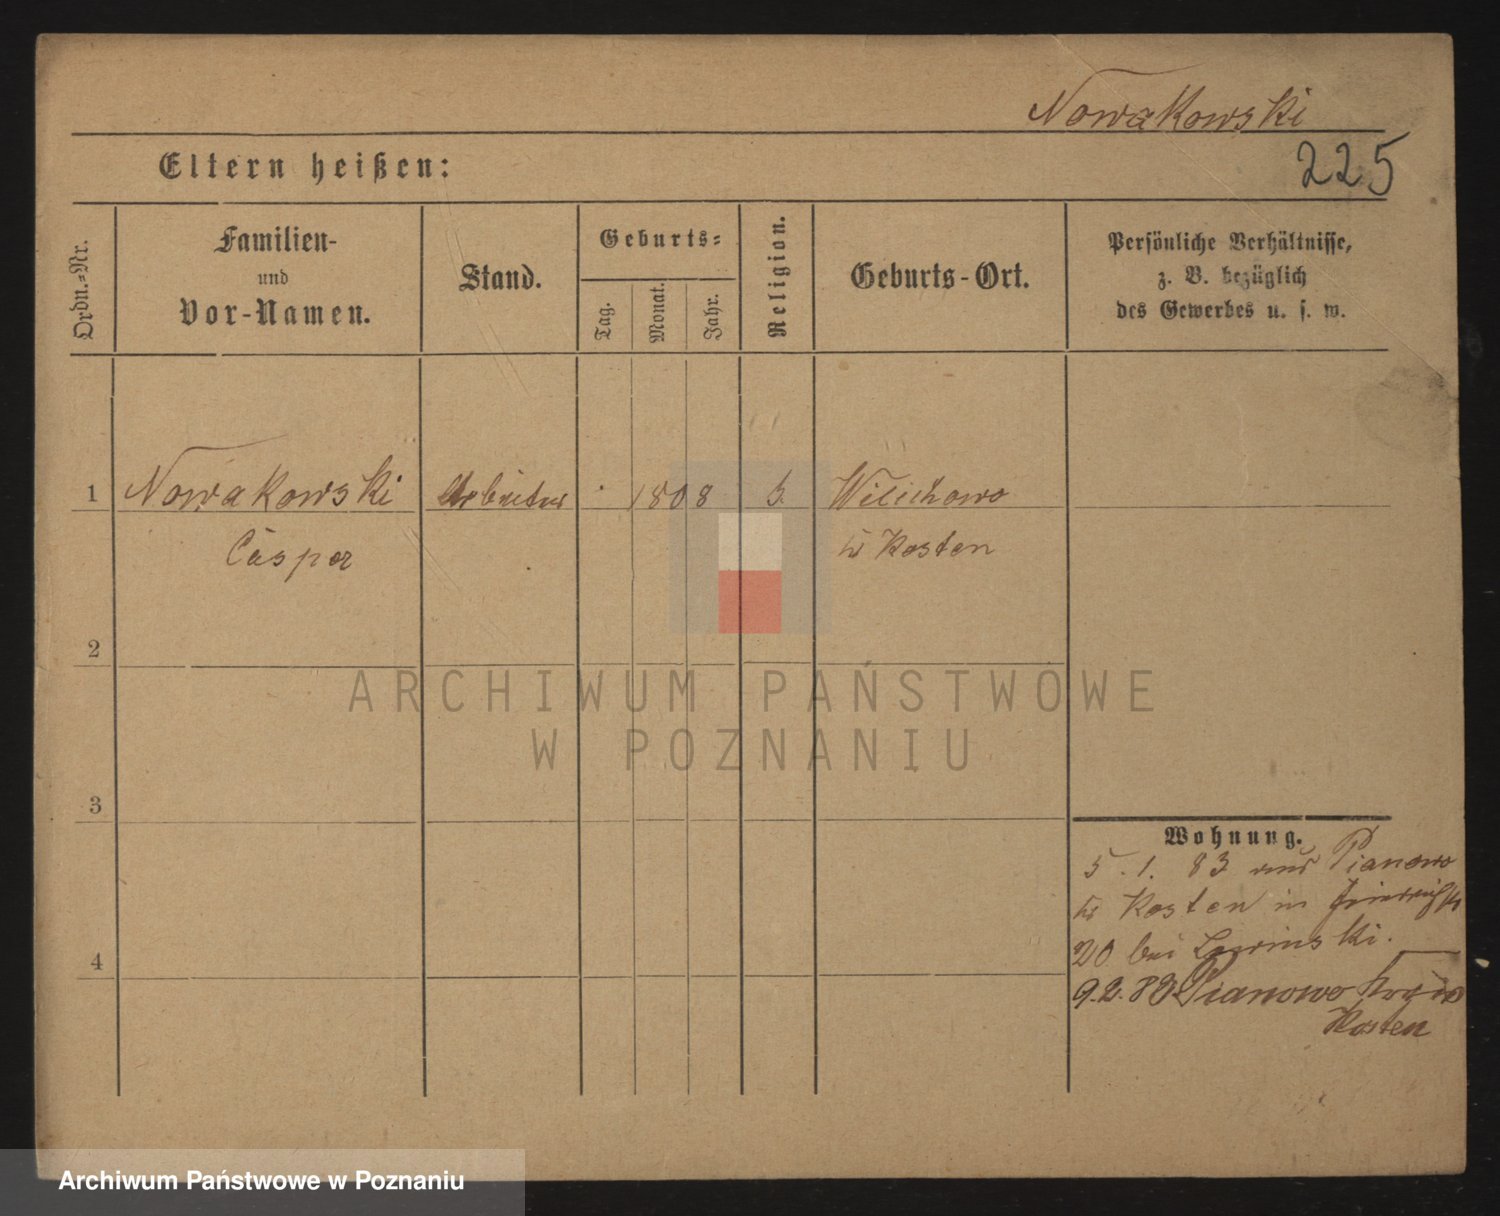 Nowakowski
225
Eltern heißen:
Ordn.-Nr.
Familien-
und
Vor-Namen.
Stand.
Geburts-
Tag.
Monat.
Jahr.
Religion.
Geburts-Ort.
Persönliche Verhältnisse,
z. B. bezüglich
des Gewerbes u. s. w.
1 Nowakowski Arbeiter 1808 Wilichowo
Casper Kosten
2
3
4
Wohnung.
5.1.83 aus Pianowo
Kosten in
20 bei
9.2.83 Pianowo Kreis
Kosten
ARCHIWUM PAŃSTWOWE
W POZNANIU
Archiwum Państwowe w Poznaniu